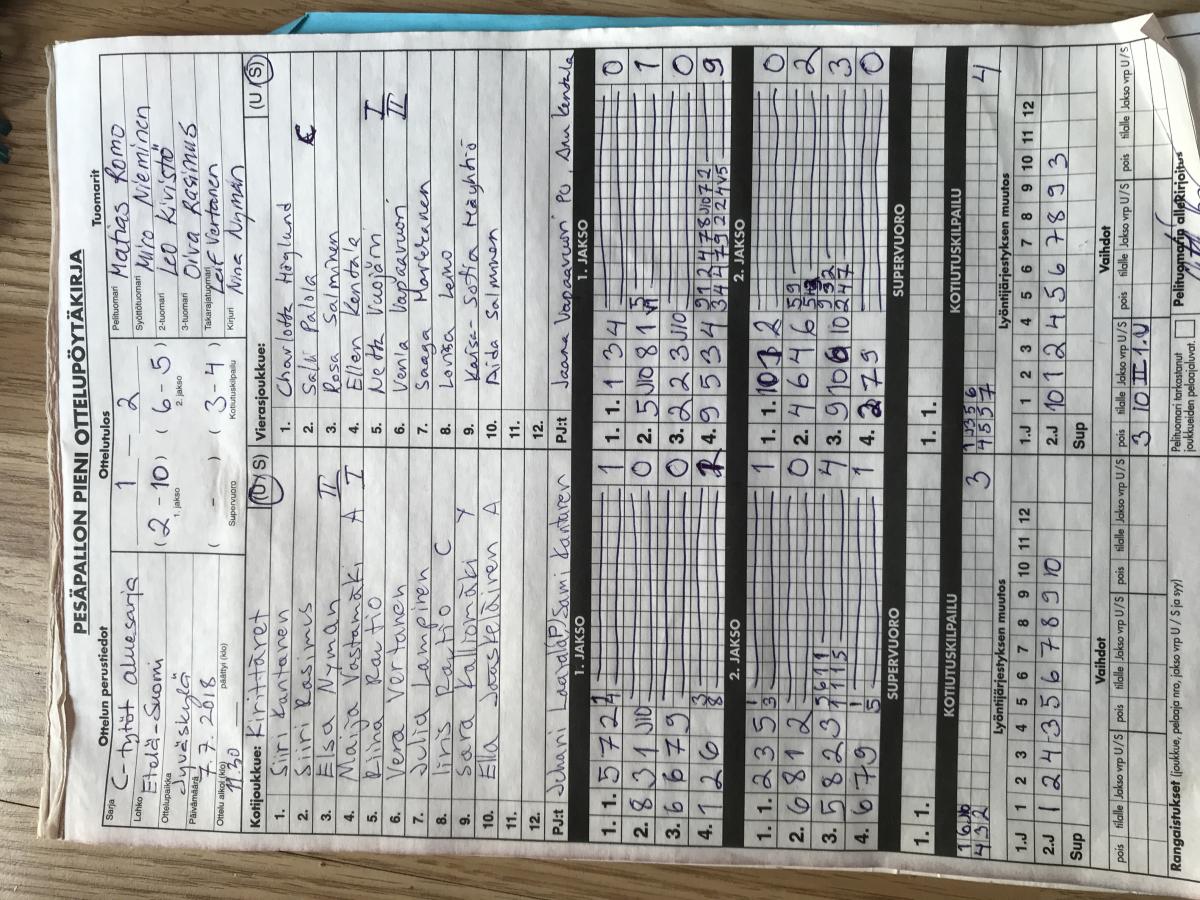 PESÄPALLON PIENI OTTELUPÖYTÄKIRJA
Ottelun perustiedot
Sarja C-tytöt aluesarja
Lohko Etelä-Suomi
Ottelupaikka Jyväskylä
Päivämäärä 7.7.2018
Ottelu alkoi (klo) 11.30 päättyi (klo)
Ottelutulos
1 - 2
(2 - 10) (6 - 5)
1. jakso 2. jakso
( - ) (3 - 4)
Supervuoro Kotiutuskilpailu
Tuomarit
Pelituomari Matias Romo
Syöttötuomari Miro Nieminen
2-tuomari Leo Kivistö
3-tuomari Oiva Rasimus
Takarajatuomari Leif Vertanen
Kirjuri Nina Nyman
Kotijoukkue: Kirittäret (U / S)
1. Siiri Kantanen
2. Siiri Rasimus
3. Elsa Nyman II
4. Maija Vastamäki A I
5. Riina Rautio
6. Vera Vertanen
7. Julia Lampinen
8. Iiris Rautio C
9. Sara Kalliomäki Y
10. Ella Saastelainen A
11.
12.
PJ:t Juhani Laavala
Sami Kantanen
Vierasjoukkue: (U / S)
1. Charlotta Höglund
2. Salli Palola C
3. Rosa Salminen
4. Ellen Kentala
5. Netta Vuojärvi I
6. Venla Vapaavuori II
7. Saaga Markkanen
8. Lovisa Lemo
9. Kaisa-Sofia Häyhtiö
10. Aida Salminen
11.
12.
PJ:t Jaana Vapaavuori PJ, Anu Kentala
1. JAKSO
1. 1. 5 7 2 1
2. 8 3 1 J10 0
3. 6 6 7 9 0
4. 1 2 6 1
1. JAKSO
1. 1. 1 3 4 0
2. 5 J10 8 1 1
3. 2 2 3 J10 0
4. 9 5 3 4 9
2. JAKSO
1. 1. 2 3 5 1
2. 6 8 1 2 0
3. 5 8 2 3 4
4. 6 7 9 1
2. JAKSO
1. 1. 10 1 2 0
2. 4 6 4 6 2
3. 9 10 3
4. 2 7 9 0
SUPERVUORO
1. 1.
SUPERVUORO
1. 1.
KOTIUTUSKILPAILU
4 3 2 3
KOTIUTUSKILPAILU
4 5 5 7 4
Lyöntijärjestyksen muutos
1.J 1 2 3 4 5 6 7 8 9 10 11 12
2.J 1 2 4 3 5 6 7 8 9 10
Sup
Lyöntijärjestyksen muutos
1.J 1 2 3 4 5 6 7 8 9 10 11 12
2.J 10 1 2 4 5 6 7 8 9 3
Sup
Vaihdot
pois tilalle Jakso vrp U / S pois tilalle Jakso vrp U / S pois tilalle Jakso vrp U / S
Vaihdot
pois tilalle Jakso vrp U / S pois tilalle Jakso vrp U / S pois tilalle Jakso vrp U / S
3 10 II 1.U
Rangaistukset (joukkue, pelaaja nro, jakso vrp U / S ja syy)
Pelituomari tarkastanut
joukkueiden pelaajaluvat.
Pelituomarin allekirjoitus